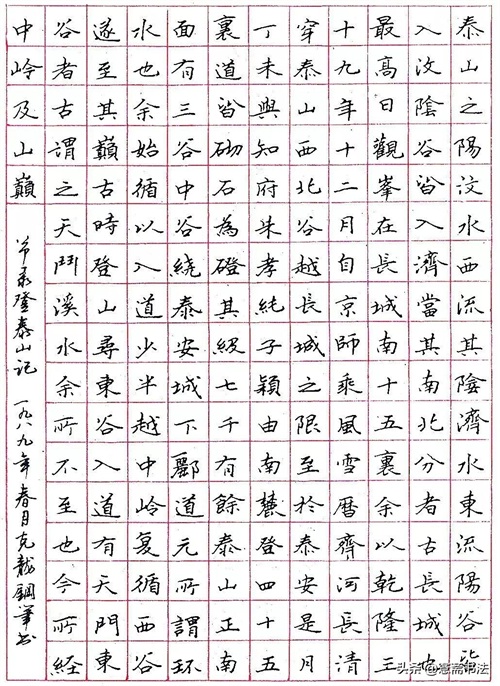 泰山之陽汶水西流其陰濟水東流陽谷皆
入汶陰谷皆入濟當其南北分者古長城也
最高日觀峯在長城南十五裏余以乾隆三
十九年十二月自京師乘風雪曆齊河長清
穿泰山西北谷越長城之限至於泰安是月
丁未與知府朱孝純子穎由南麓登四十五
裏道皆砌石為磴其級七千有餘泰山正南
面有三谷中谷繞泰安城下酈道元所謂环
水也余始循以入道少半越中岭复循西谷
遂至其巔古時登山尋東谷入道有天門東
谷者古謂之天門溪水余所不至也今所經
中岭及山巔
节录登泰山记 一九八九年春月克龍鋼筆书
头条@慧斋书法